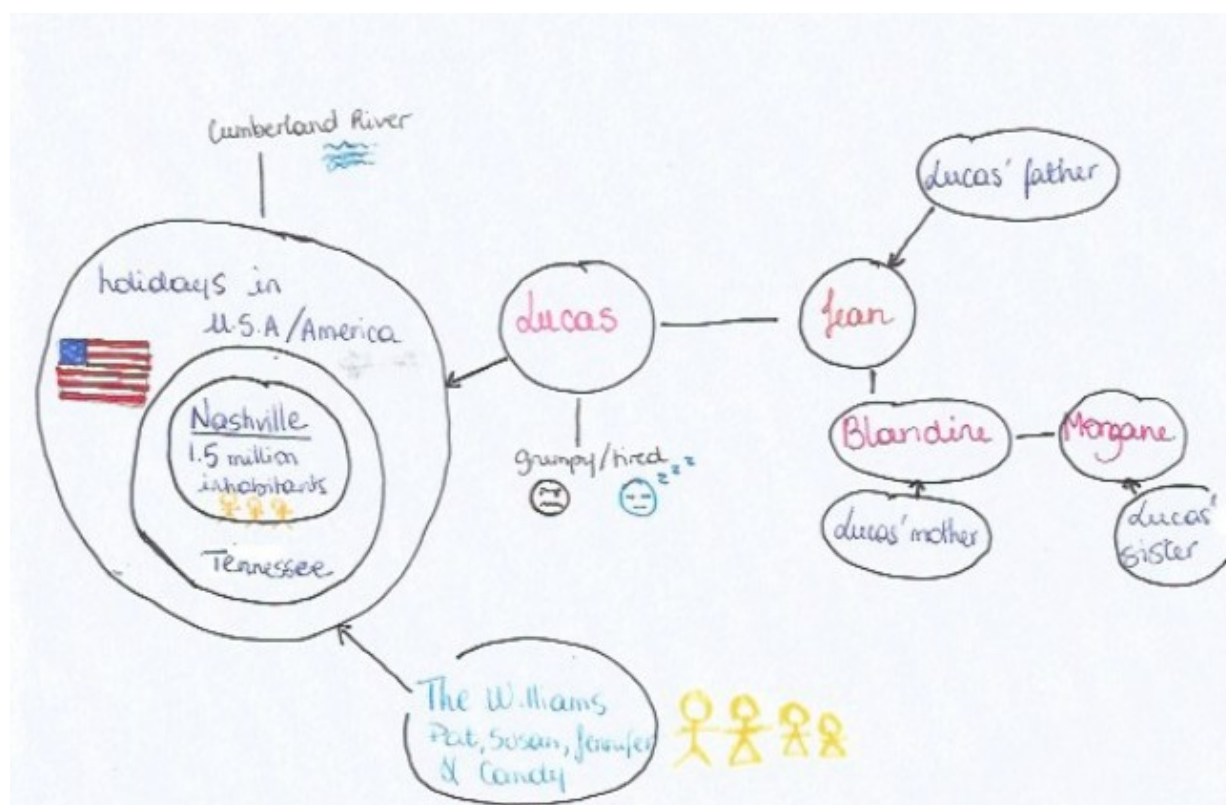 Cumberland River
holidays in
U.S.A/America
Nashville
1.5 million
inhabitants
Tennessee
Lucas
grumpy/tired
zzz
Jean
Lucas' father
Blandine
Lucas' mother
Morgane
Lucas'
sister
The Williams
Pat, Susan, Jennifer
& Candy